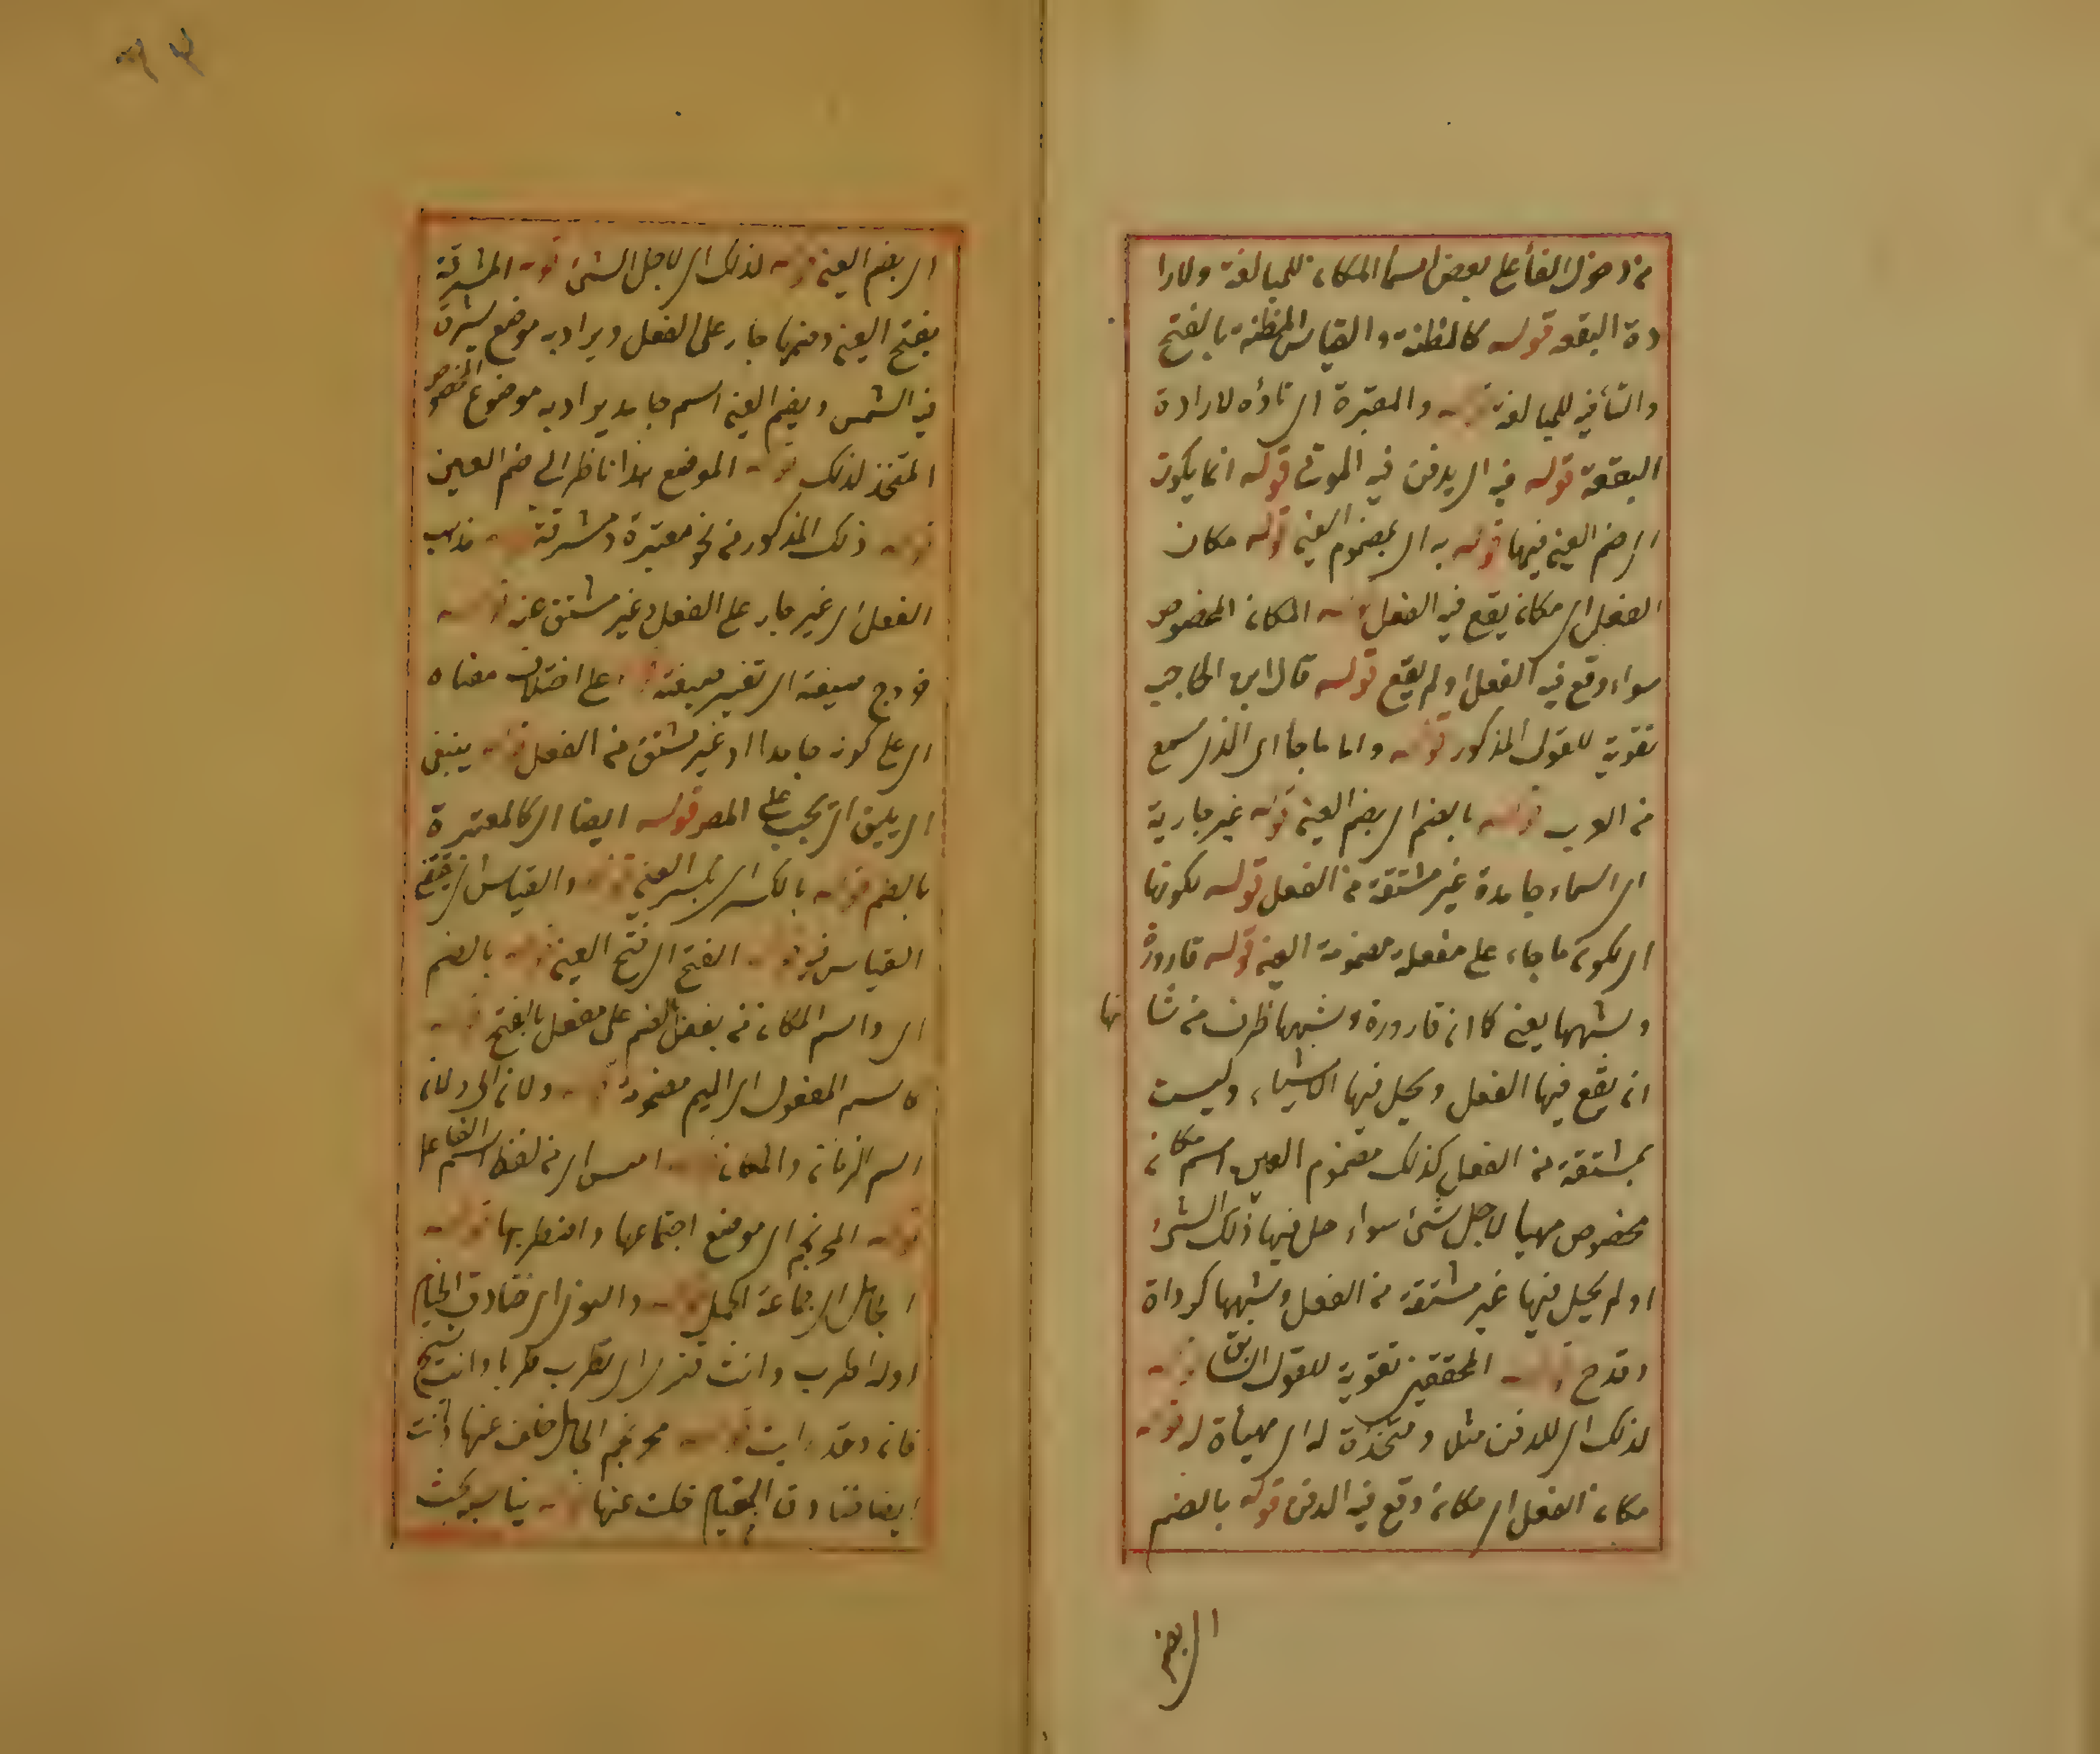 من دخول الفأ على بعض اسمأ المكان للمبالغة ولارا
دة البقعه قوله كالمظنة والقياس المظنة بالفتح
والتأ فيه للمبالغة قوله والمقبرة اى تاؤه لارادة
البقعة قوله فيه اى يدفن فيه الموتى قوله انما يكون
اى ضم العين فيها قوله به اى بمضموم العين قوله مكان
الفعل اى مكان يقع فيه الفعل قوله المكان المخصوص
سواء وقع فيه الفعل او لم يقع قوله قال ابن الحاجب
تقوية للقول المذكور قوله واما ما جأ اى الذى سمع
من العرب قوله بالضم اى بضم العين قوله غير جارية
اى اسماء جامدة غير مشتقة من الفعل قوله لكونها
اى لكون ما جاء على مفعلة مضمومة العين قوله قارورة
وشبهها يعنى كما ان قارورة وشبهها ظرف من شا نها
ان يقع فيها الفعل ويحل فيها الاشياء وليست
بمشتقة من الفعل كذلك مضموم العين اسم مكان
مخصوص مهيأ لاجل شئ سواء حل فيها ذلك الشئ
او لم يحل فيها غير مشتقة من الفعل وشبهها كدواة
وقدح قوله المحققين تقوية للقول السابق قوله
لذلك اى للدفن مثلا ومتخذة له اى مهيأة له قوله
مكان الفعل اى مكان وقع فيه الدفن قوله بالضم
اى بضم
اى بضم العين قوله لذلك اى لاجل الشئ قوله المشرقة
بفتح العين وضمها جار على الفعل ويراد به موضع شرق
فيه الشمس وبضم العين اسم جامد يراد به موضوع المخصوص
المتخذ لذلك قوله الموضع هذا ناظر الى ضم العين
قوله ذلك المذكور من نحو مقبرة ومشرقة قوله مذهب
الفعل اى غير جار على الفعل وغير مشتق عنه قوله
خروج صيغة اى تغير صيغته على اختلاف معناه
اى على كونه جامدا او غير مشتق من الفعل قوله ينبغى
اى يليق اى يجب على المصر قوله ايضا اى كالمقبرة
بالضم قوله بالكسر اى بكسر العين قوله والقياس اى مقتضى
القياس فيه قوله الفتح اى فتح العين قوله بالضم
اى واسم المكان من يفعل بالضم على مفعل بالفتح قوله
كاسم المفعول اى الميم مضمومة قوله ولان اى ولان
اسم الزمان والمكان قوله امس اى من لفظ اسم الفاعل
قوله المحرنجم اى موضع اجتماعها واضطربها قوله
الجامل اى جماعة الجمل قوله والنوى اى خنادق الخيام
اوله اطرب وانت قنسرى اى تطرب طربا وانت شيخ
فان وقد رايت قوله محرنجم الجامل خلف عنها وانت
ايضا خنادق الخيام خلت عنها قوله يناسب بحث